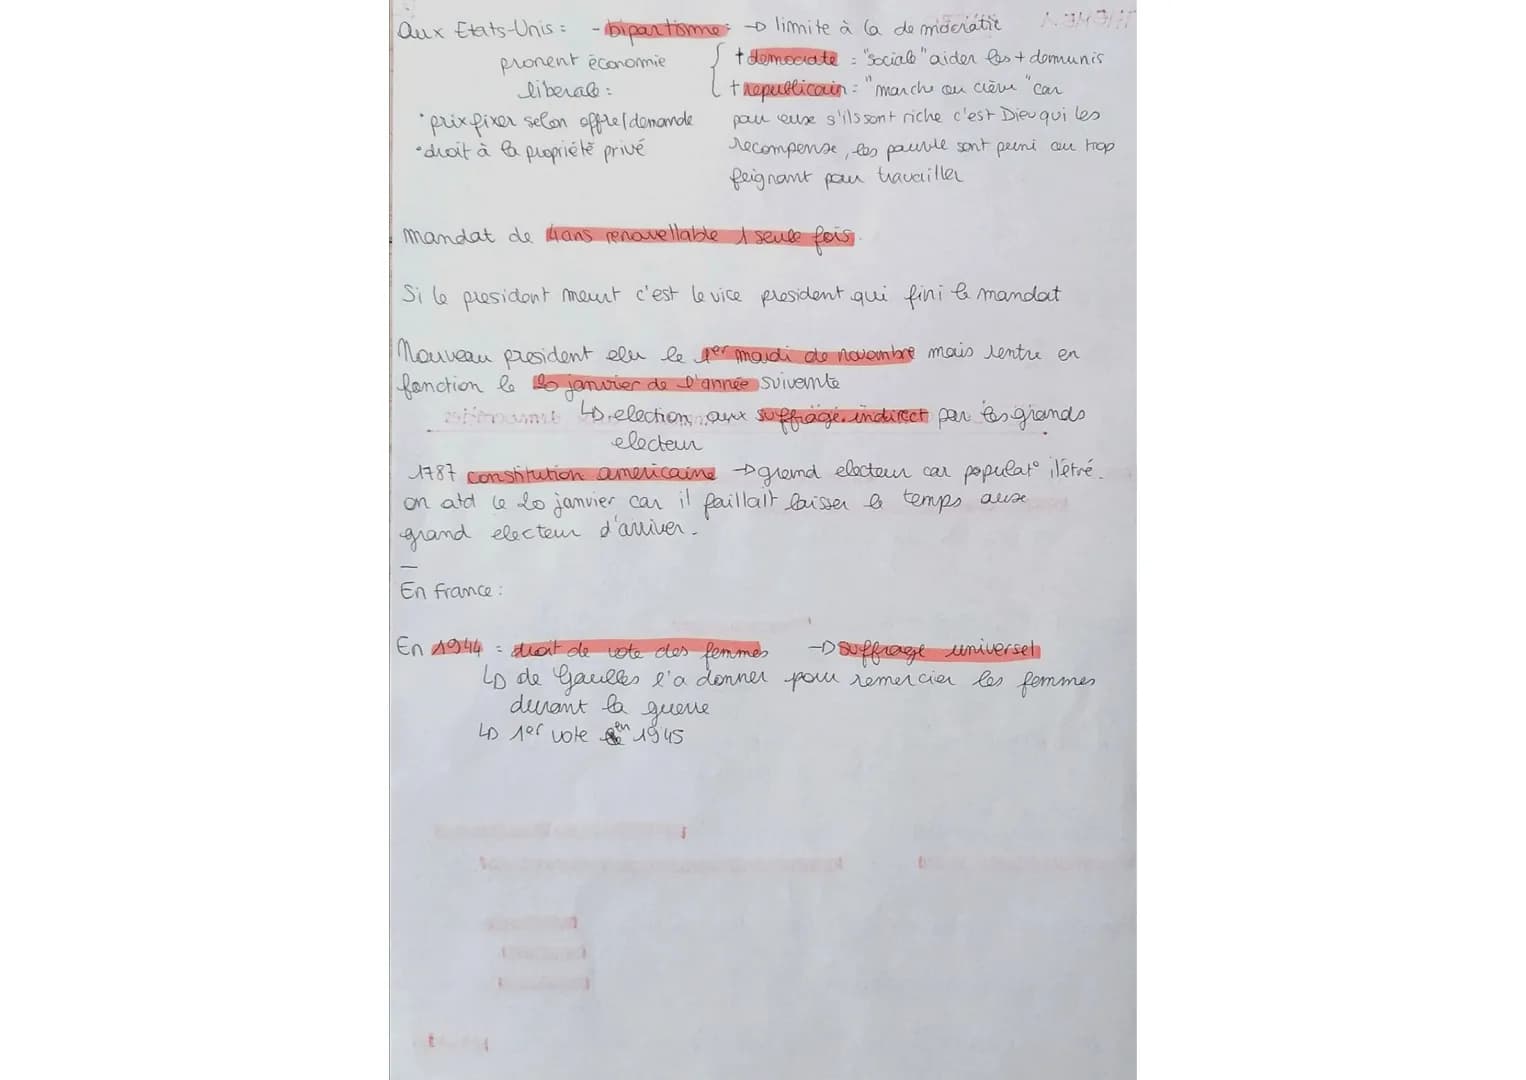 Aux Etats-Unis : - bipartisme : → limite à la democratie
pronent économie
liberale :
• prix fixer selon offre/demande
• droit à la propriété privé
+ democrate : "sociale" aider les + demunis
+ republicain : "marche ou crève" car
pour euxe s'ils sont riche c'est Dieu qui les
recompense, les pauvre sont puni ou trop
feignant pour travailler
mandat de 4 ans renouvellable 1 seule fois.
Si le president meurt c'est le vice president qui fini le mandat
Nouveau president elu le 1er mardi de novembre mais rentre en
fonction le 20 janvier de l'année suivante
↳ election aux suffrage indirect par les grands
electeur
1787 constitution americaine → grand electeur car populat° illétré.
on atd le 20 janvier car il faillait laisser le temps aux
grand electeur d'arriver.
—
En France :
En 1944 : droit de vote des femmes → suffrage universel
↳ de Gaulles l'a donner pour remercier les femmes
durant la guerre
↳ 1er vote en 1945